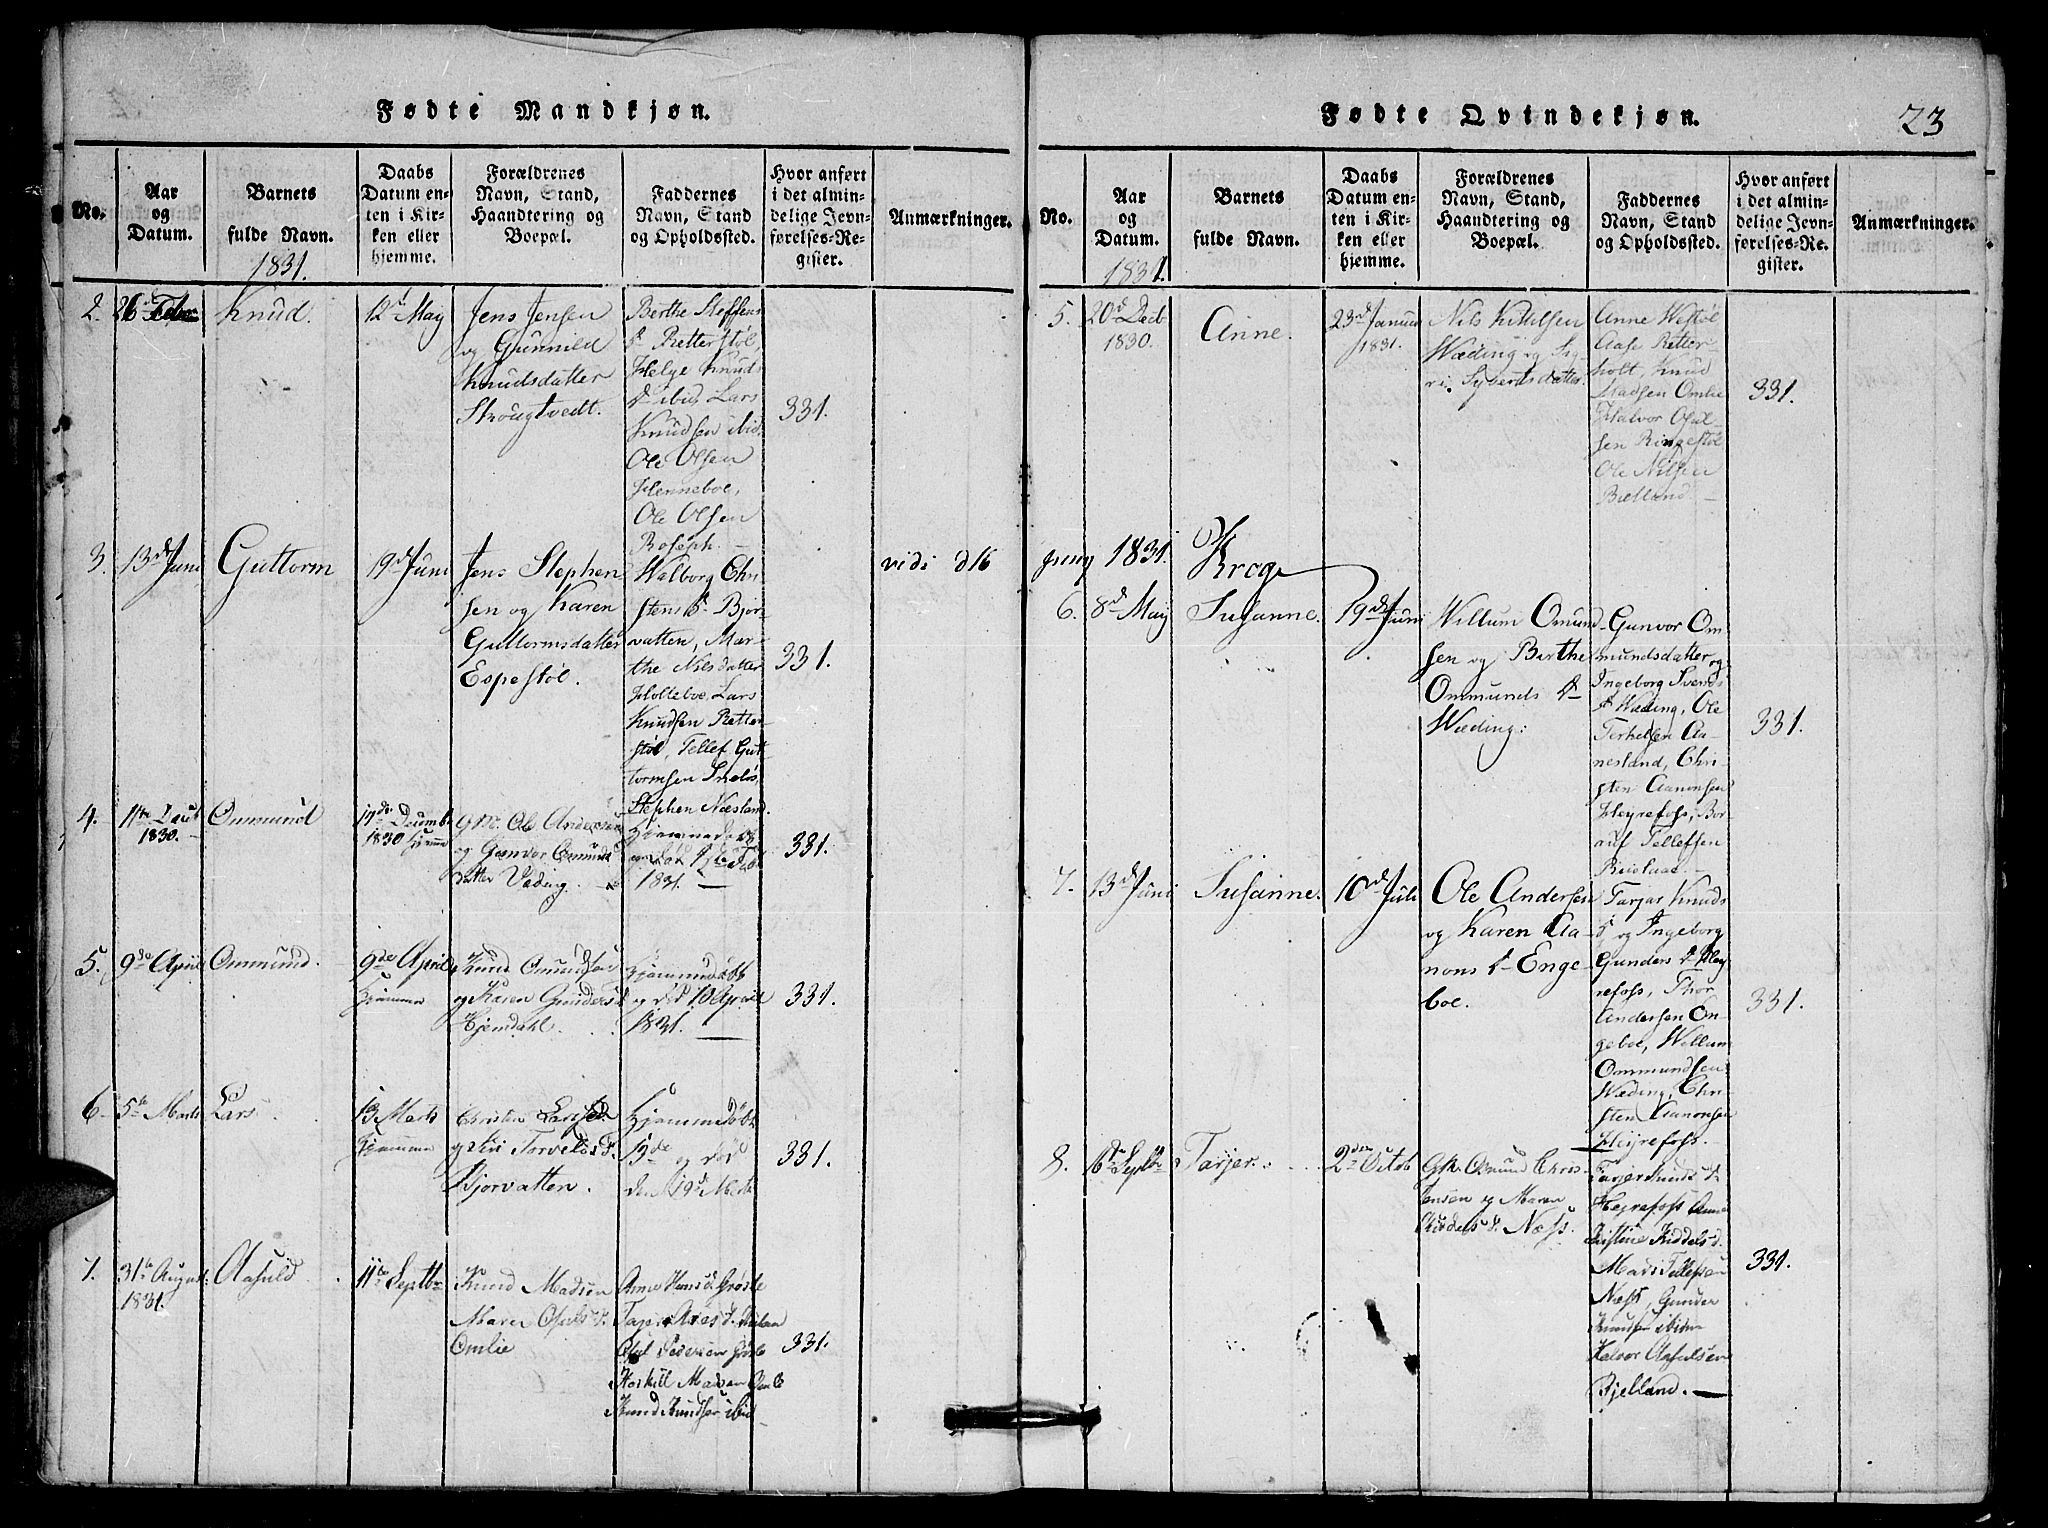 Fødte Mandkjøn.
No.
Aar
og
Datum.
Barnets
fulde Navn.
1831.
Daabs
Datum en-
ten i Kir-
ken eller
hjemme.
Forældrenes
Navn, Stand,
Haandtering og
Boepæl.
Faddernes
Navn, Stand
og Opholdssted.
Hvor anført
i det almin-
delige Jevn-
førelses-Re-
gister.
Anmærkninger.
2.
26 Febr
Knud.
12te May
Jens Jensen
og Gunnild
Knudsdatter
Skougtvedt.
Berthe Steffens
d. Retterstøl,
Helge Knuds
d ibid, Lars
Knudsen ibid.
Ole Olsen
Henneboe,
Ole Olsen
Roseph.
331.
3.
13de Juni
Guttorm
19d Juni
Jens Stephen
sen og Karen
Guttormsdatter
Espestøl.
Walborg Chri-
stens d. Bjor-
vatten, Mar-
the Nilsdatter
Holleboe, Lars
Knudsen Retter
støl, Tellef Gut
tormsen
Stephen Næsland.
331.
vidi d 16
4.
11te
1830.
Ommund
17de Decemb.
1830 hjemme
G.M. Ole Andersen
og Gunvor Omunds
datter Væding.
Hjemmedøbt
og død
1831.
331.
5.
9de April
Ommund.
9de April
hjemme
Knud Omundsen
og Karen Gunders d
Hjemdahl.
hjemmedøbt
og død 10 April
1831.
331.
6.
5te Marts
Lars
13 Marts
hjemme
Christen Larsen
og Siri Torvelds d.
Bjorvatten.
Hjemmedøbt
13de og død
den 19d Marts
331.
7.
31te August
1831.
Aasuld
11te Septbr
Knud Madsen
Maren Osuls d.
Omlie
Anne Hans d. Grøsle
Osul Pedersen Grøsle
Knud Knudsen ibid
331.
Fødte Qvindekjøn.
23
No.
Aar
og
Datum.
1831.
Barnets
fulde Navn.
Daabs
Datum en-
ten i Kir-
ken eller
hjemme.
Forældrenes
Navn, Stand,
Haandtering og
Boepæl.
Faddernes
Navn, Stand
og Opholdssted.
Hvor anført
i det almin-
delige Jevn-
førelses-Re-
gister.
Anmærkninger.
5.
20d Decb
1830.
Anne.
23d Januar
1831.
Nils Kittelsen
Wæding og Sig-
ri Syvertsdatter
Anne Westøl
Aase Retter-
holt, Knud
Madsen Omlie
Halvor Osul-
sen Ringestøl
Ole Nilsen
Bielland.
331.
juny 1831.
Krog
6.
8d May
Susanne.
19de Juni
Willum Omund
sen og Berthe
Ommunds d
Wæding:
Gunvor Om
mundsdatter og
Ingeborg Svends
d Wæding, Ole
Terkelsen Aa-
nesland, Chri-
sten Aanonsen
Heyrefoss, Bor
auf Tellefsen
331.
7.
13d Juni
Susanne.
10d Juli
Ole Andersen
og Karen Aa-
nons d Enge-
boe.
Tarjer Knuds
d og Ingeborg
Gunders d Hey
refoss, Thor
Andersen En-
geboe, Willum
Ommundsen
Wæding, Chri-
sten Aanonsen
Heyrefoss.
331.
8.
6te Septbr
Tarjer.
2den Octob
G.M. Omund Chris
tensen og Maren
Næss.
Tarjer Knuds d.
Heyrefoss Anne
Kistine Kiddels d.
Mads Tellefsen
Næss, Gunder
Knudsen ibiden
Halvor Aasulsen
Bjelland.
331.